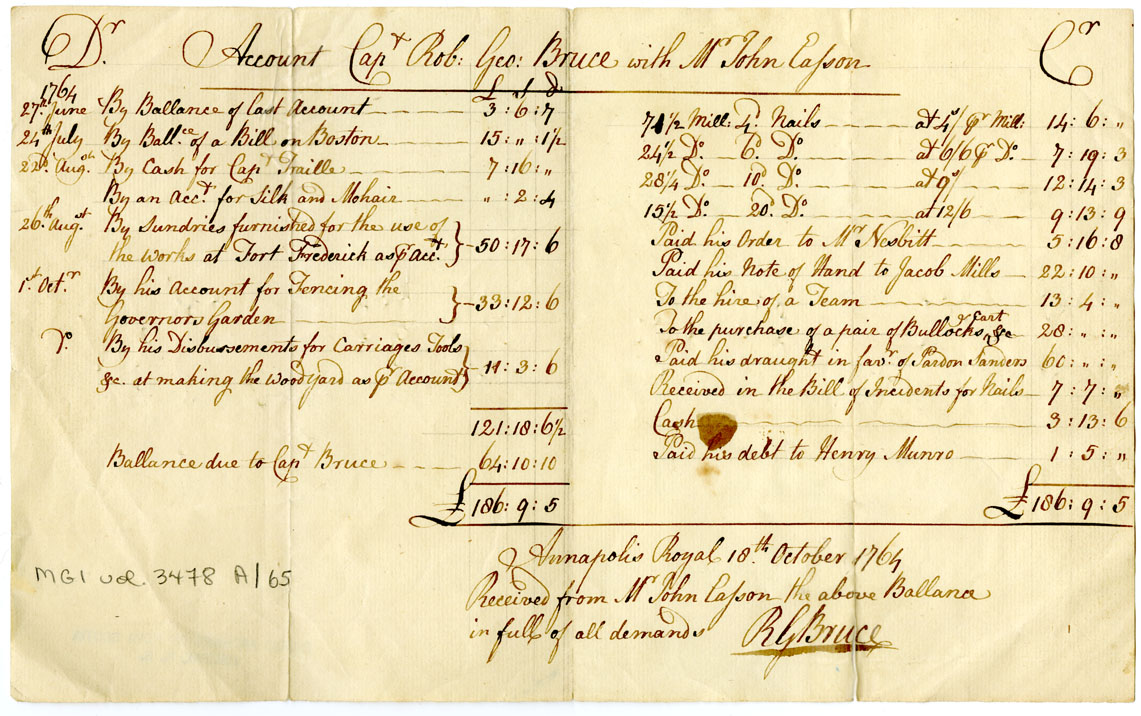 Dr Account Capt Rob: Geo: Bruce with Mr John Easson Cr
1764 £ s d
27th June By Ballance of Last Account 3: 6: 7
24th July By Ballce. of a Bill on Boston 15: „: 1½
22d. Augst. By Cash for Capt Traille 7: 16: „
By an Acct. for Silk and Mohair „: 2: 4
26th Augst By Sundries furnished for the use of
the works at Fort Frederick as pr Acct. } 50: 17: 6
1st. Octr. By his Account for Fencing the
Governors Garden } 33: 12: 6
Do. By his Disbursements for Carriages Tools
&c. at making the Wood Yard as pr Account } 11: 3: 6
121: 18: 6½
Ballance due to Capt Bruce 64: 10: 10
£ 186: 9: 5
71½ Mill: 4d. Nails at 4s/ pr Mill: 14: 6: „
24½ Do. 6d. Do. at 6/6 pr Do. 7: 19: 3
28¼ Do. 10d. Do. at 9s/ 12: 14: 3
15½ Do. 20d. Do. at 12/6 9: 13: 9
Paid his Order to Mr Nesbitt 5: 16: 8
Paid his Note of Hand to Jacob Mills 22: 10: „
To the hire of a Team 13: 4: „
To the purchase of a pair of Bullocks, Cart &c 28: „: „
Paid his draught in favr. of Pardon Sanders 60: „: „
Received in the Bill of Incidents for Nails 7: 7: „
Cash 3: 13: 6
Paid his debt to Henry Munro 1: 5: „
£ 186: 9: 5
Annapolis Royal 18th. October 1764
Received from Mr John Easson the above Ballance
in full of all demands RGBruce
MG1 vol. 3478 A/65